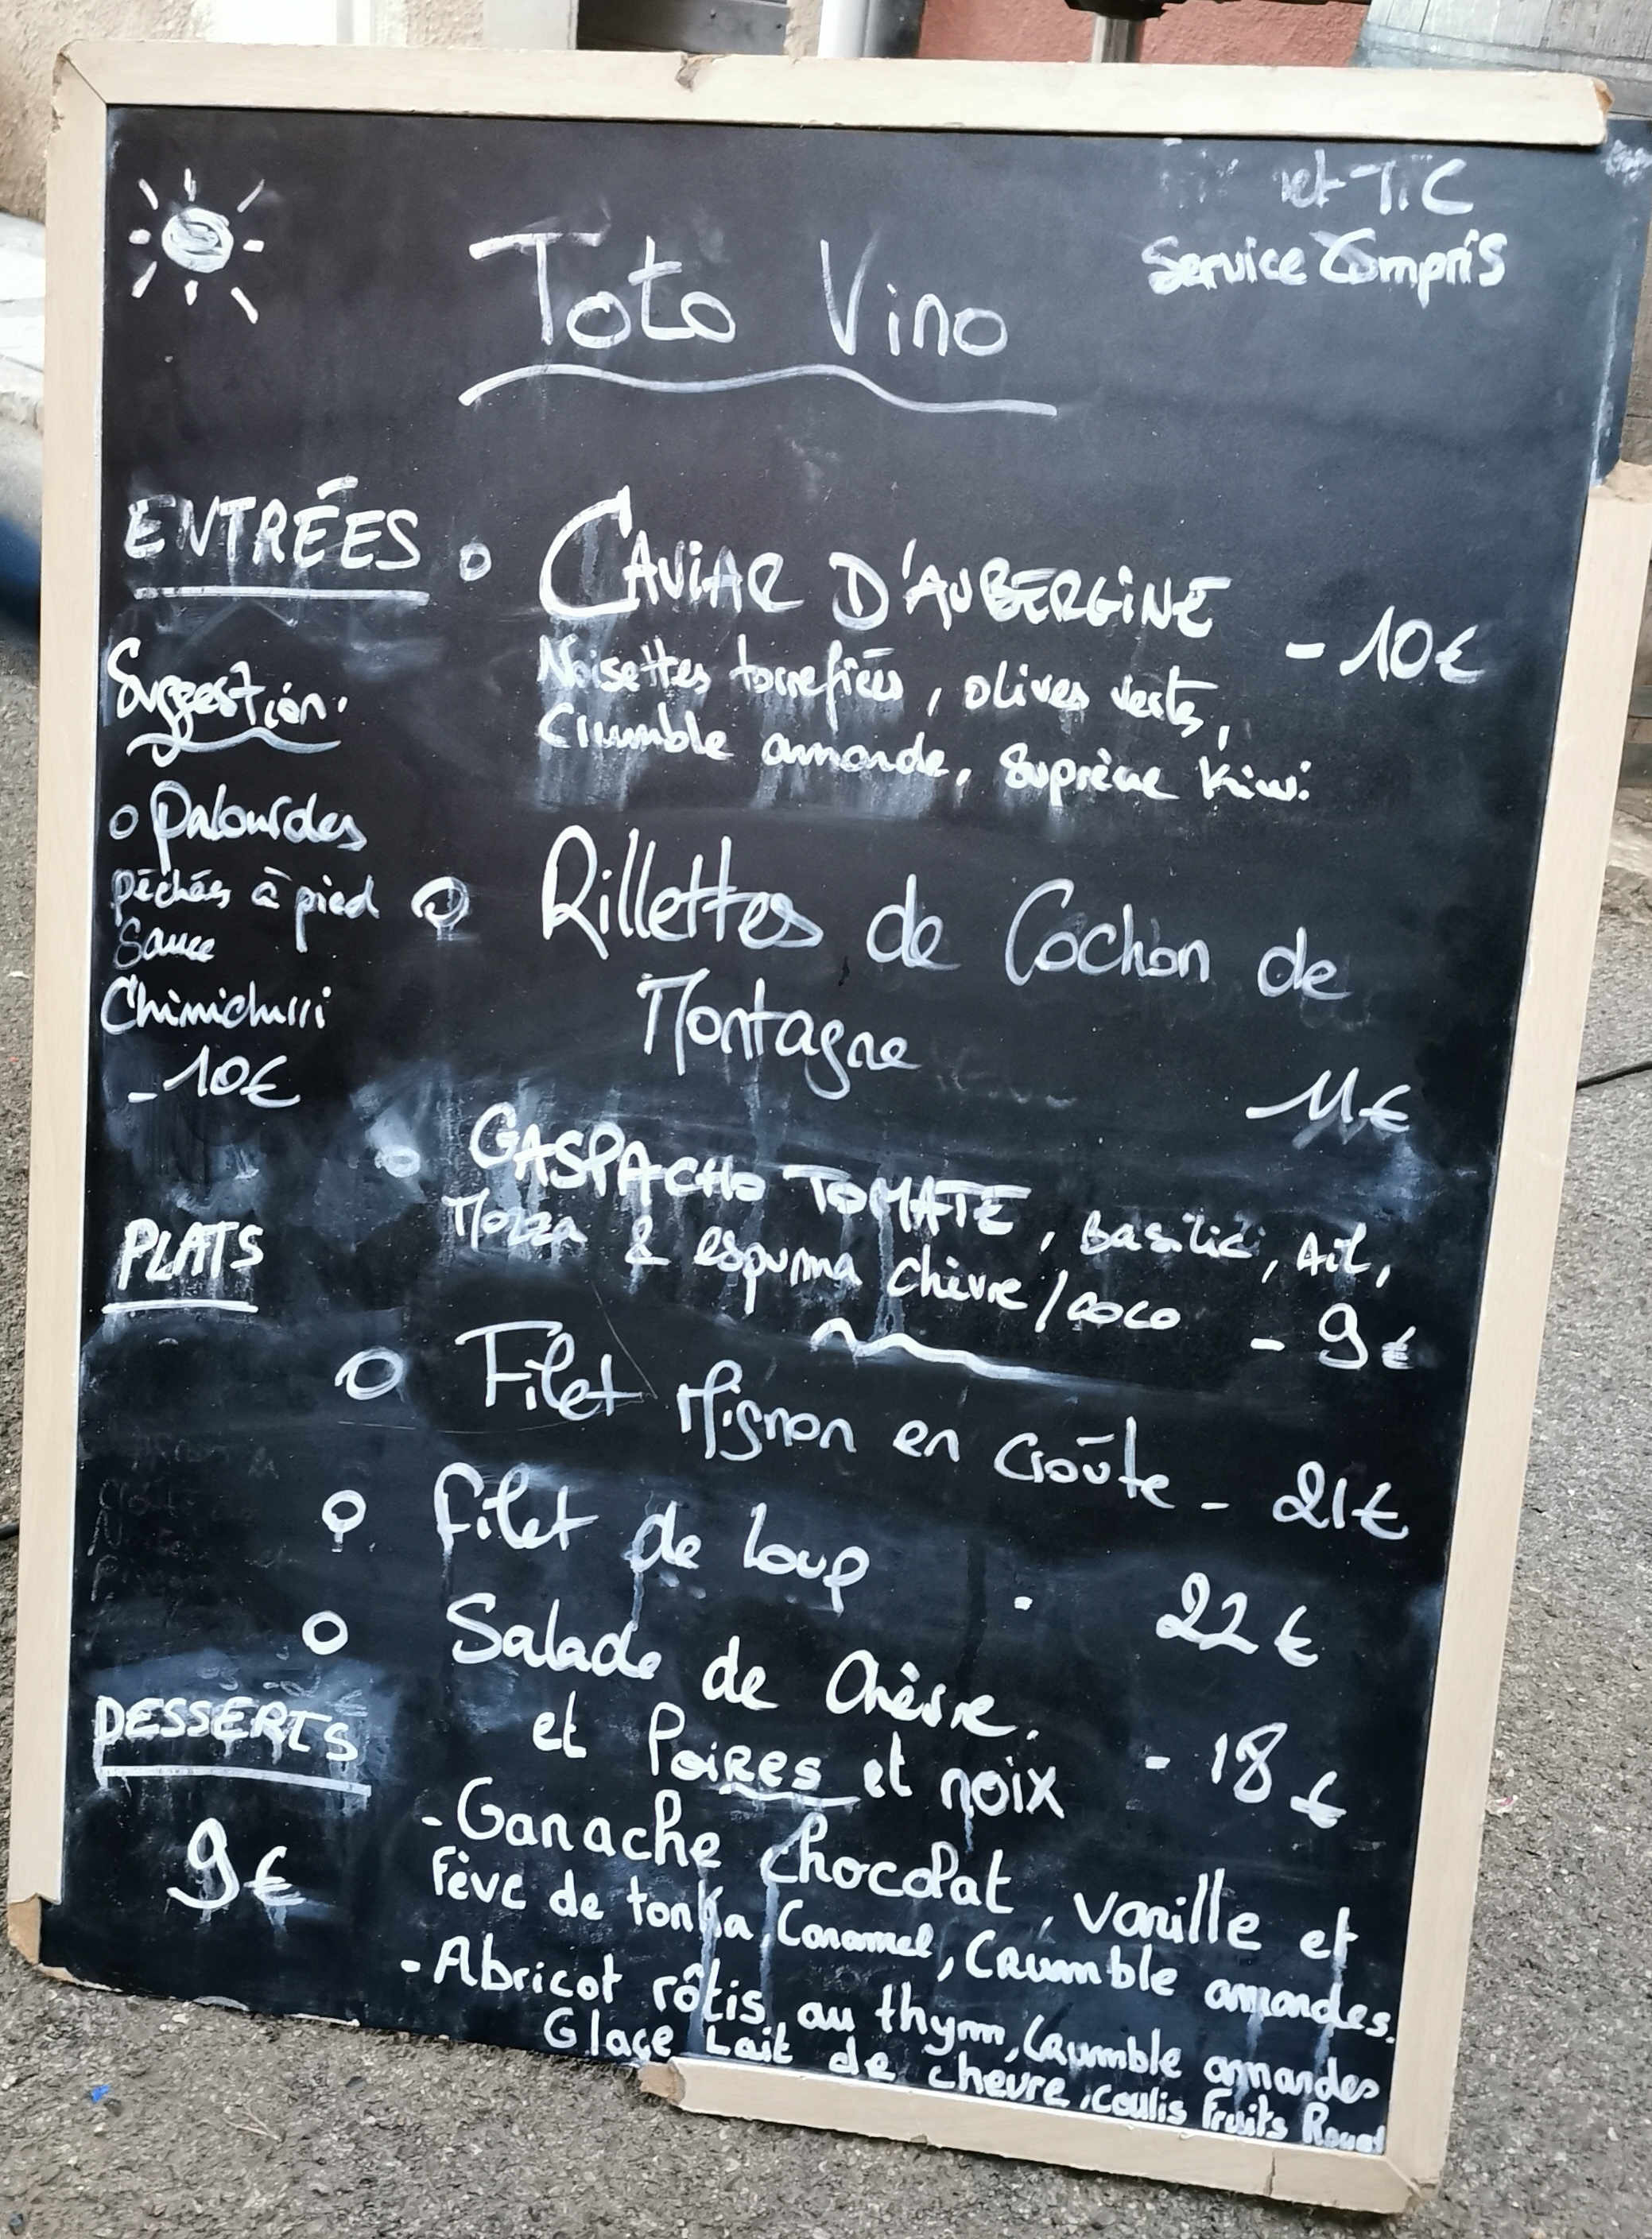 et TTC
Service Compris
Toto Vino
ENTRÉES
CAVIAR D'AUBERGINE - 10€
Noisettes torrefiées, olives vertes,
Crumble amande, Suprème Kiwi
Suggestion:
Palourdes
pêchées à pied
Sauce
Chimichurri
- 10€
Rillettes de Cochon de
Montagne
- 11€
GASPACHO TOMATE, Basilic, Ail,
Mozza & espuma chèvre/coco - 9€
PLATS
Filet Mignon en Croûte - 21€
Filet de Loup - 22€
Salade de Chèvre.
et Poires et noix - 18€
DESSERTS
9€
- Ganache chocolat, vanille et
Fève de tonka, Caramel, Crumble amandes.
- Abricot rôtis au thym, Crumble amandes
Glace Lait de chevre, coulis Fruits